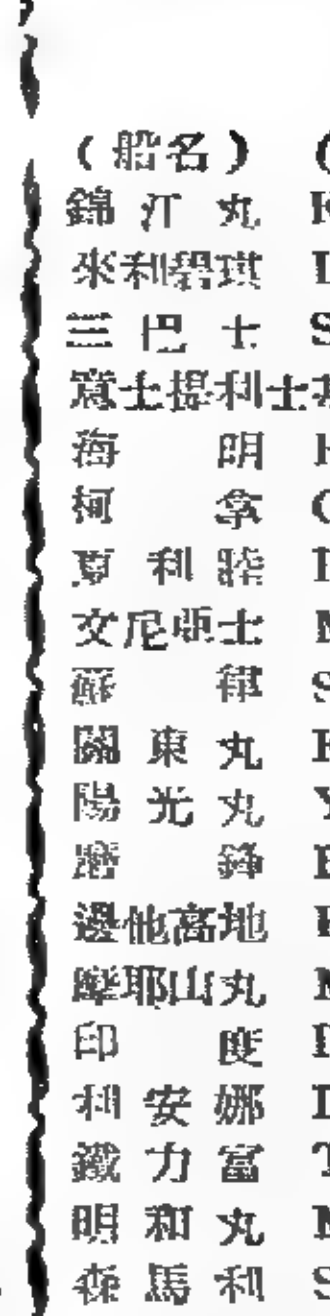 （船名） （
錦江丸 K
來利碧琪 L
三巴士 S
意士提利士
海明 H
柯拿
夏利 
文尼亞士 M
蘇律 S
關東丸 K
陽光丸 Y
鋒
邊他高地
摩耶山丸 M
印度 I
利安娜 L
鐵力富 T
明和丸 M
森馬利 S